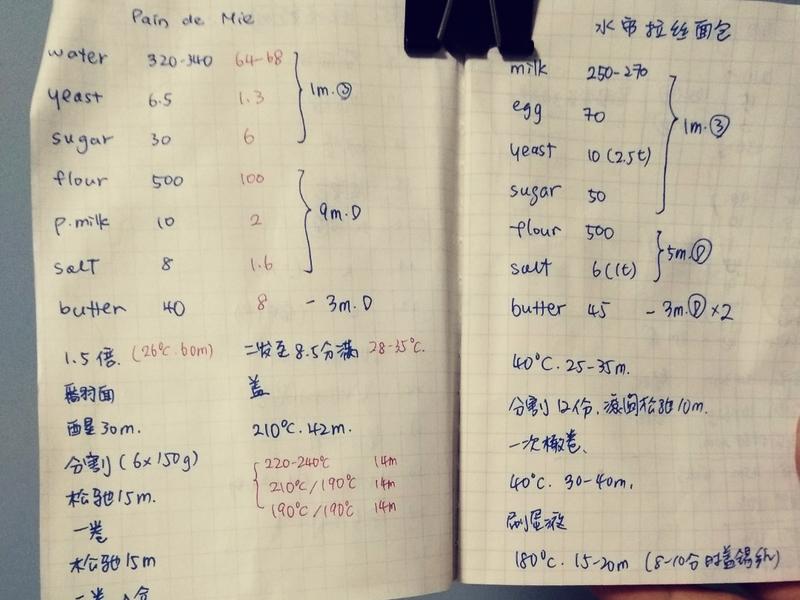 Pain de Mie
water 320-340 64-68
yeast 6.5 1.3
sugar 30 6
1m.③
flour 500 100
p.milk 10 2
salt 8 1.6
9m.D
butter 40 8 - 3m.D
1.5倍. (26℃.60m)
翻面
醒30m.
分割(6×150g)
松弛15m.
一卷
松弛15m
二卷
二发至8.5分满 28-35℃.
盖
210℃.42m.
220-240℃ 14m
210℃/190℃ 14m
190℃/190℃ 14m
水帘拉丝面包
milk 250-270
egg 70
yeast 10(2.5t)
sugar 50
1m.③
flour 500
salt 6(1t)
5m.Ⓓ
butter 45 - 3m.Ⓓ×2
40℃.25-35m.
分割12份.滚圆松弛10m.
一次擀卷、
40℃. 30-40m.
刷蛋液
180℃. 15-20m (8-10分时盖锡纸)